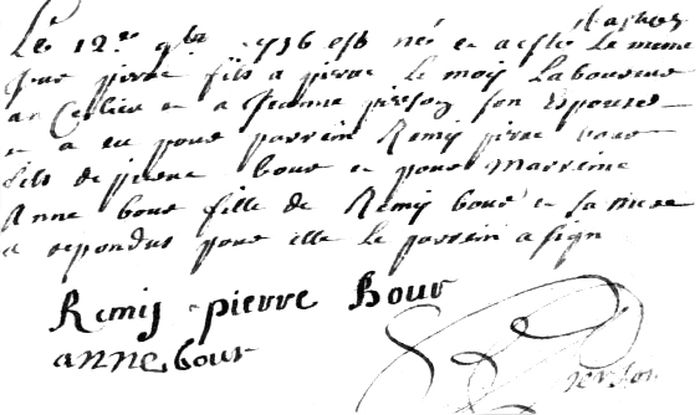 Le 12.e 9bre 1736 est né et a esté le meme
Jour pierre fils a pierre le moij Laboureur
au Cerlier et a Jeanne pierson son Epouse
et a eu pour parrein Remij pierre bour
fils de pierre bour et pour Marreine
Anne bour fille de Remij bour et sa mere
a repondus pour elle le parrein a sign
Remij pierre Bour
anne bour